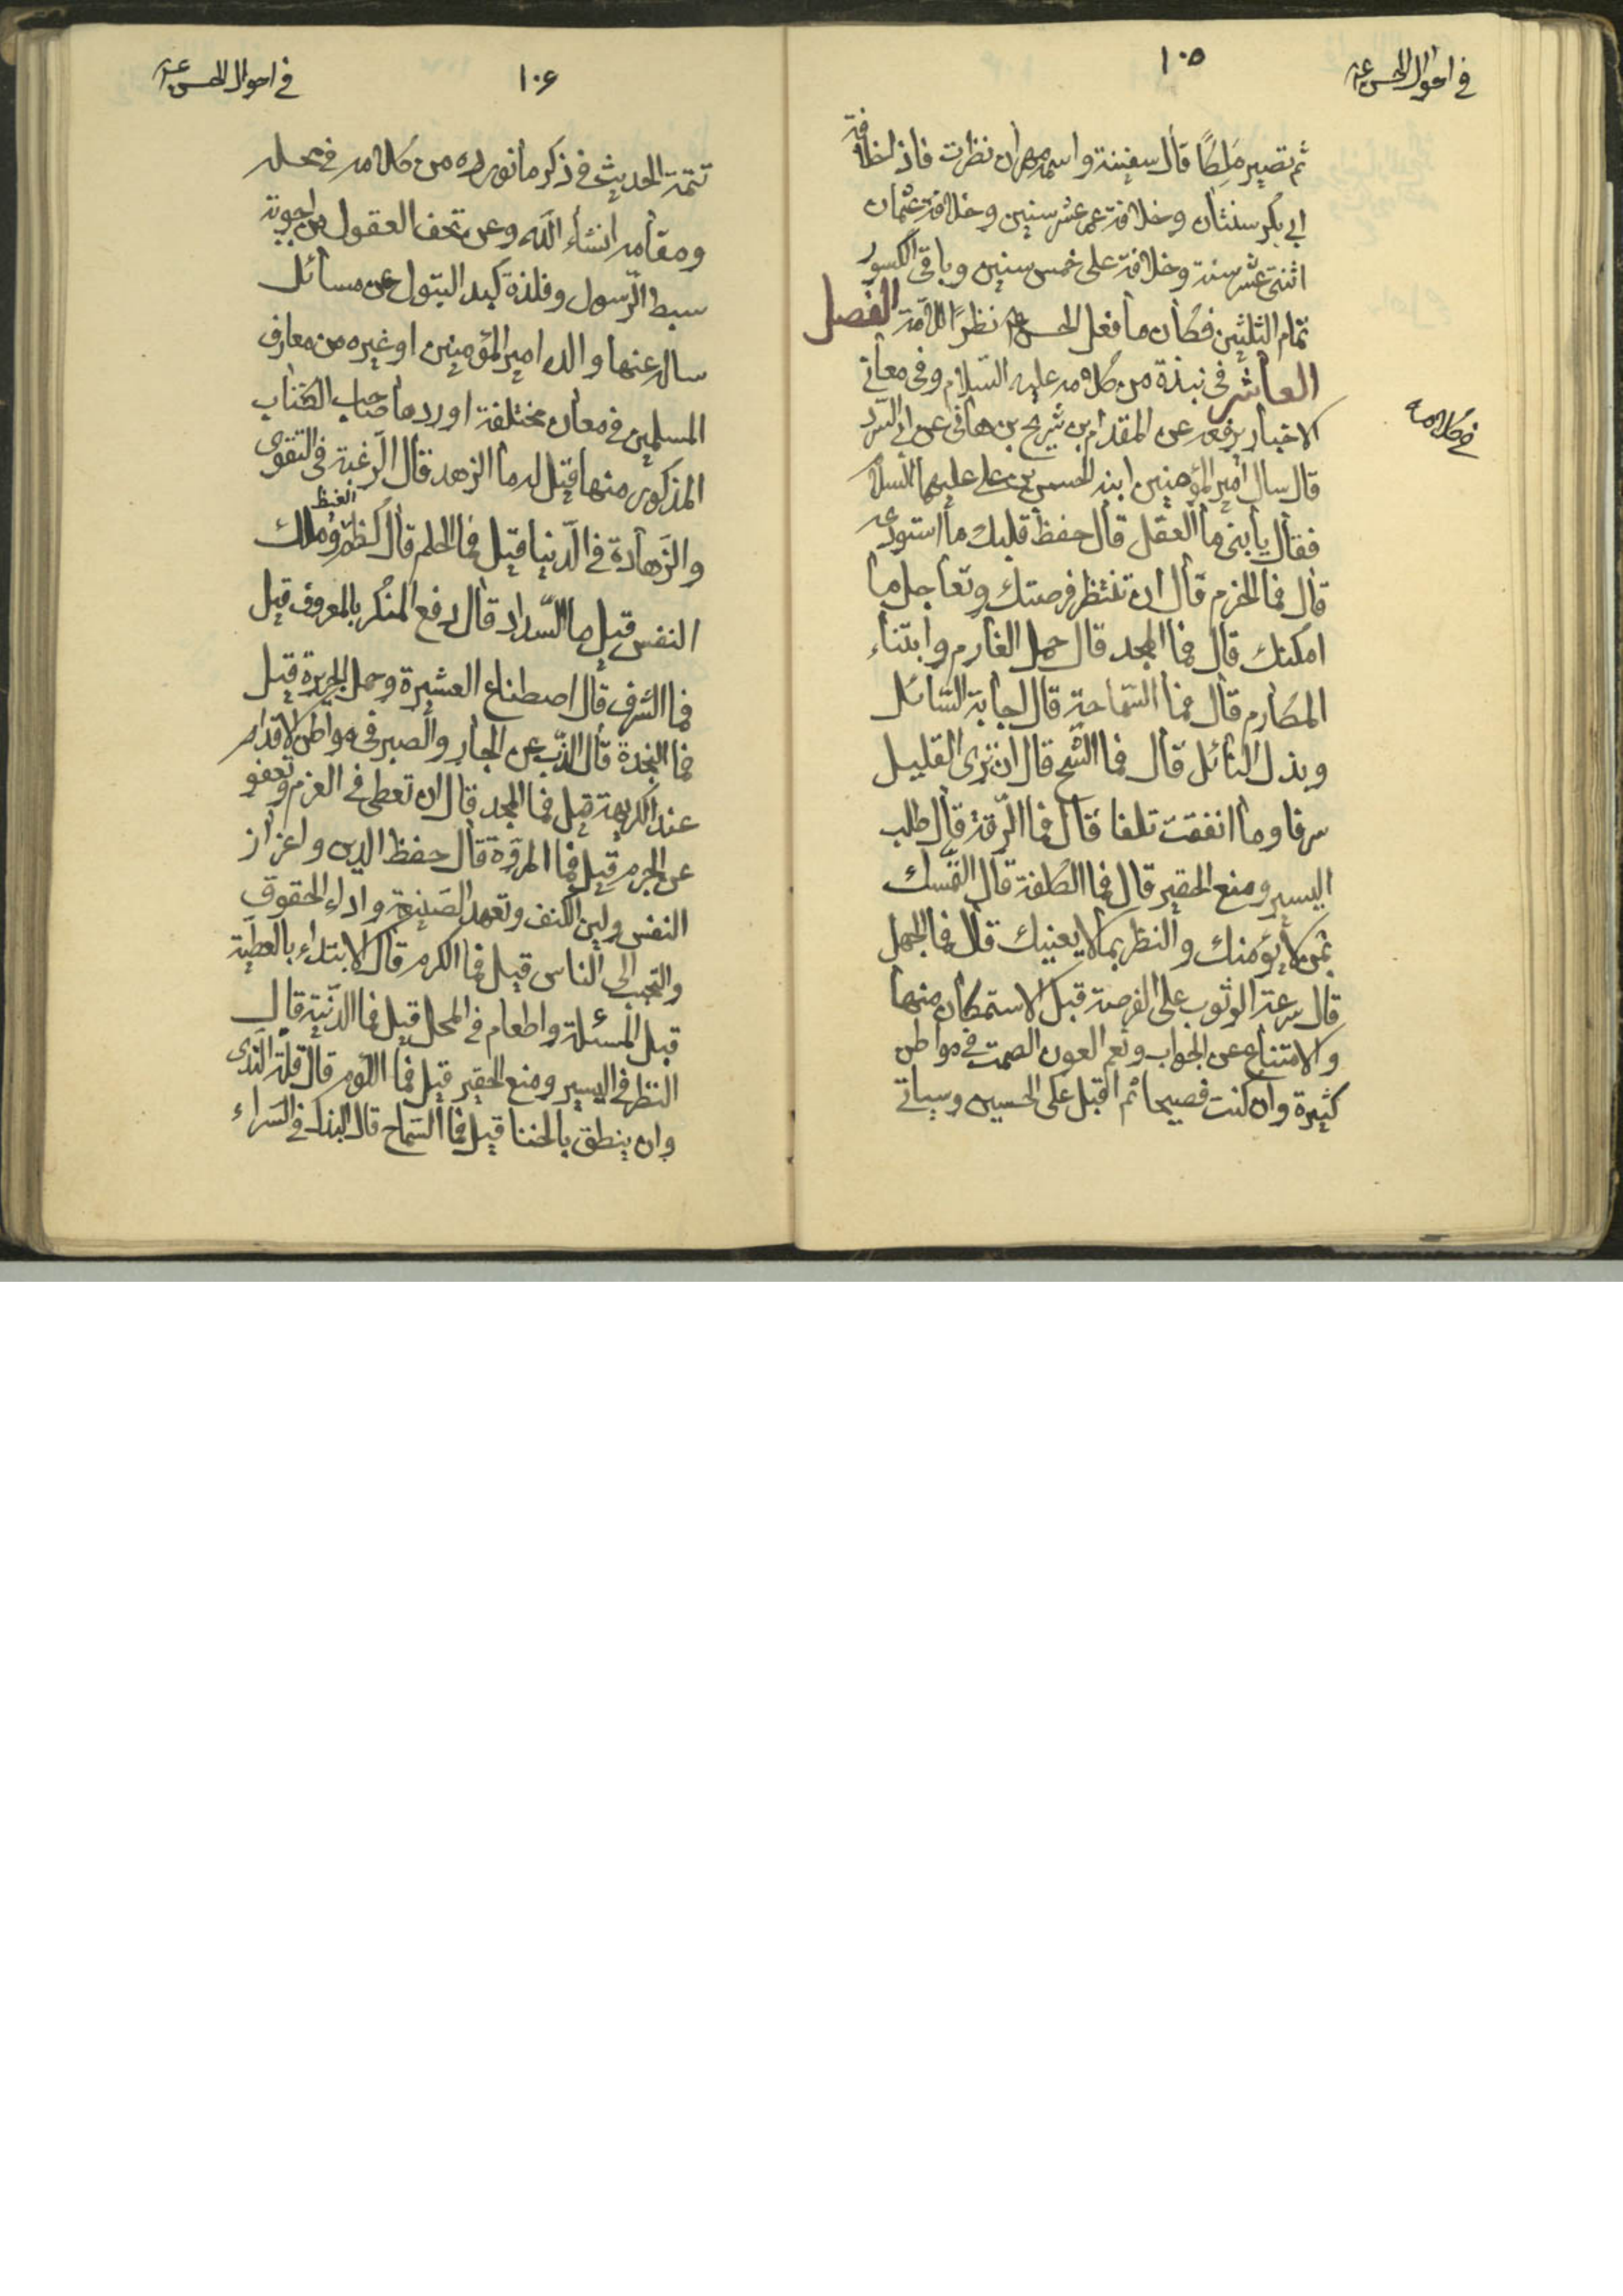 في احوال الحسن ع
١٠٥
ثم تصير ملكًا قال سفينة واسمه مهران نظرت فاذ لخلافة
ابي بكر سنتان وخلافة عمر عشر سنين وخلافة عثمان
اثنتى عشر سنة وخلافة على خمس سنين وباقي الكسور
تمام الثلثين فكان ما فعل الحسن ع نظرًا للامة الفصل
العاشر في نبذة من كلامه عليه السلام وفى معاني
الاخبار يرفعه عن المقدام بن شريح بن هانى عن ابي السرد
قال سال امير المؤمنين ابنه الحسن بن على عليهما السلام
فقال يا بنى ما العقل قال حفظ قلبك ما استودعه
قال فما الحزم قال ان تنتظر فرصتك وتعاجل ما
امكنك قال فما المجد قال حمل الغارم وابتناء
المكارم قال فما السماحة قال اجابة السائل
وبذل النائل قال فما الشح قال ان ترى القليل
سرفا وما انفقت تلفا قال فما الرقة قال طلب
اليسير ومنع الحقير قال فما الكلفة قال التمسك
بمن لا يؤمنك والنظر بما لا يعنيك قال فما الجهل
قال سرعة الوثوب على الفرصة قبل الاستمكان منها
والامتناع عن الجواب ونعم العون الصمت في مواطن
كثيرة وان كنت فصيحا ثم اقبل على الحسين وسياتي
في كلامه
في احوال الحسن ع
١٠۶
تتمة الحديث في ذكر ما نورده من كلامه في محله
ومقامه انشاء الله وعن تحف العقول من اجوبة
سبط الرسول وفلذة كبد البتول عن مسائل
ساله عنها والده امير المؤمنين او غيره من معارف
المسلمين في معان مختلفة اوردها صاحب الكتاب
المذكور منها قيل له ما الزهد قال الرغبة في التقوى
والزهادة في الدنيا قيل فما الحلم قال كظم الغيظ وملك
النفس قيل ما السداد قال دفع المنكر بالمعروف قيل
فما الشرف قال اصطناع العشيرة وحمل الجريرة قيل
فما النجدة قال الذب عن الجار والصبر في مواطن الاقدام
عند الكريهة قيل فما المجد قال ان تعطى في الغرم وتعفو
عن الجرم قيل فما المروة قال حفظ الدين واعزاز
النفس ولين الكنف وتعهد الصنيعة واداء الحقوق
والتحبب الى الناس قيل فما الكرم قال الابتداء بالعطية
قبل المسئلة واطعام في المحل قيل فما الدنية قال
النظر في اليسير ومنع الحقير قيل فما اللوم قال قلة الندى
وان ينطق بالخنا قيل فما السماح قال البذل في السراء